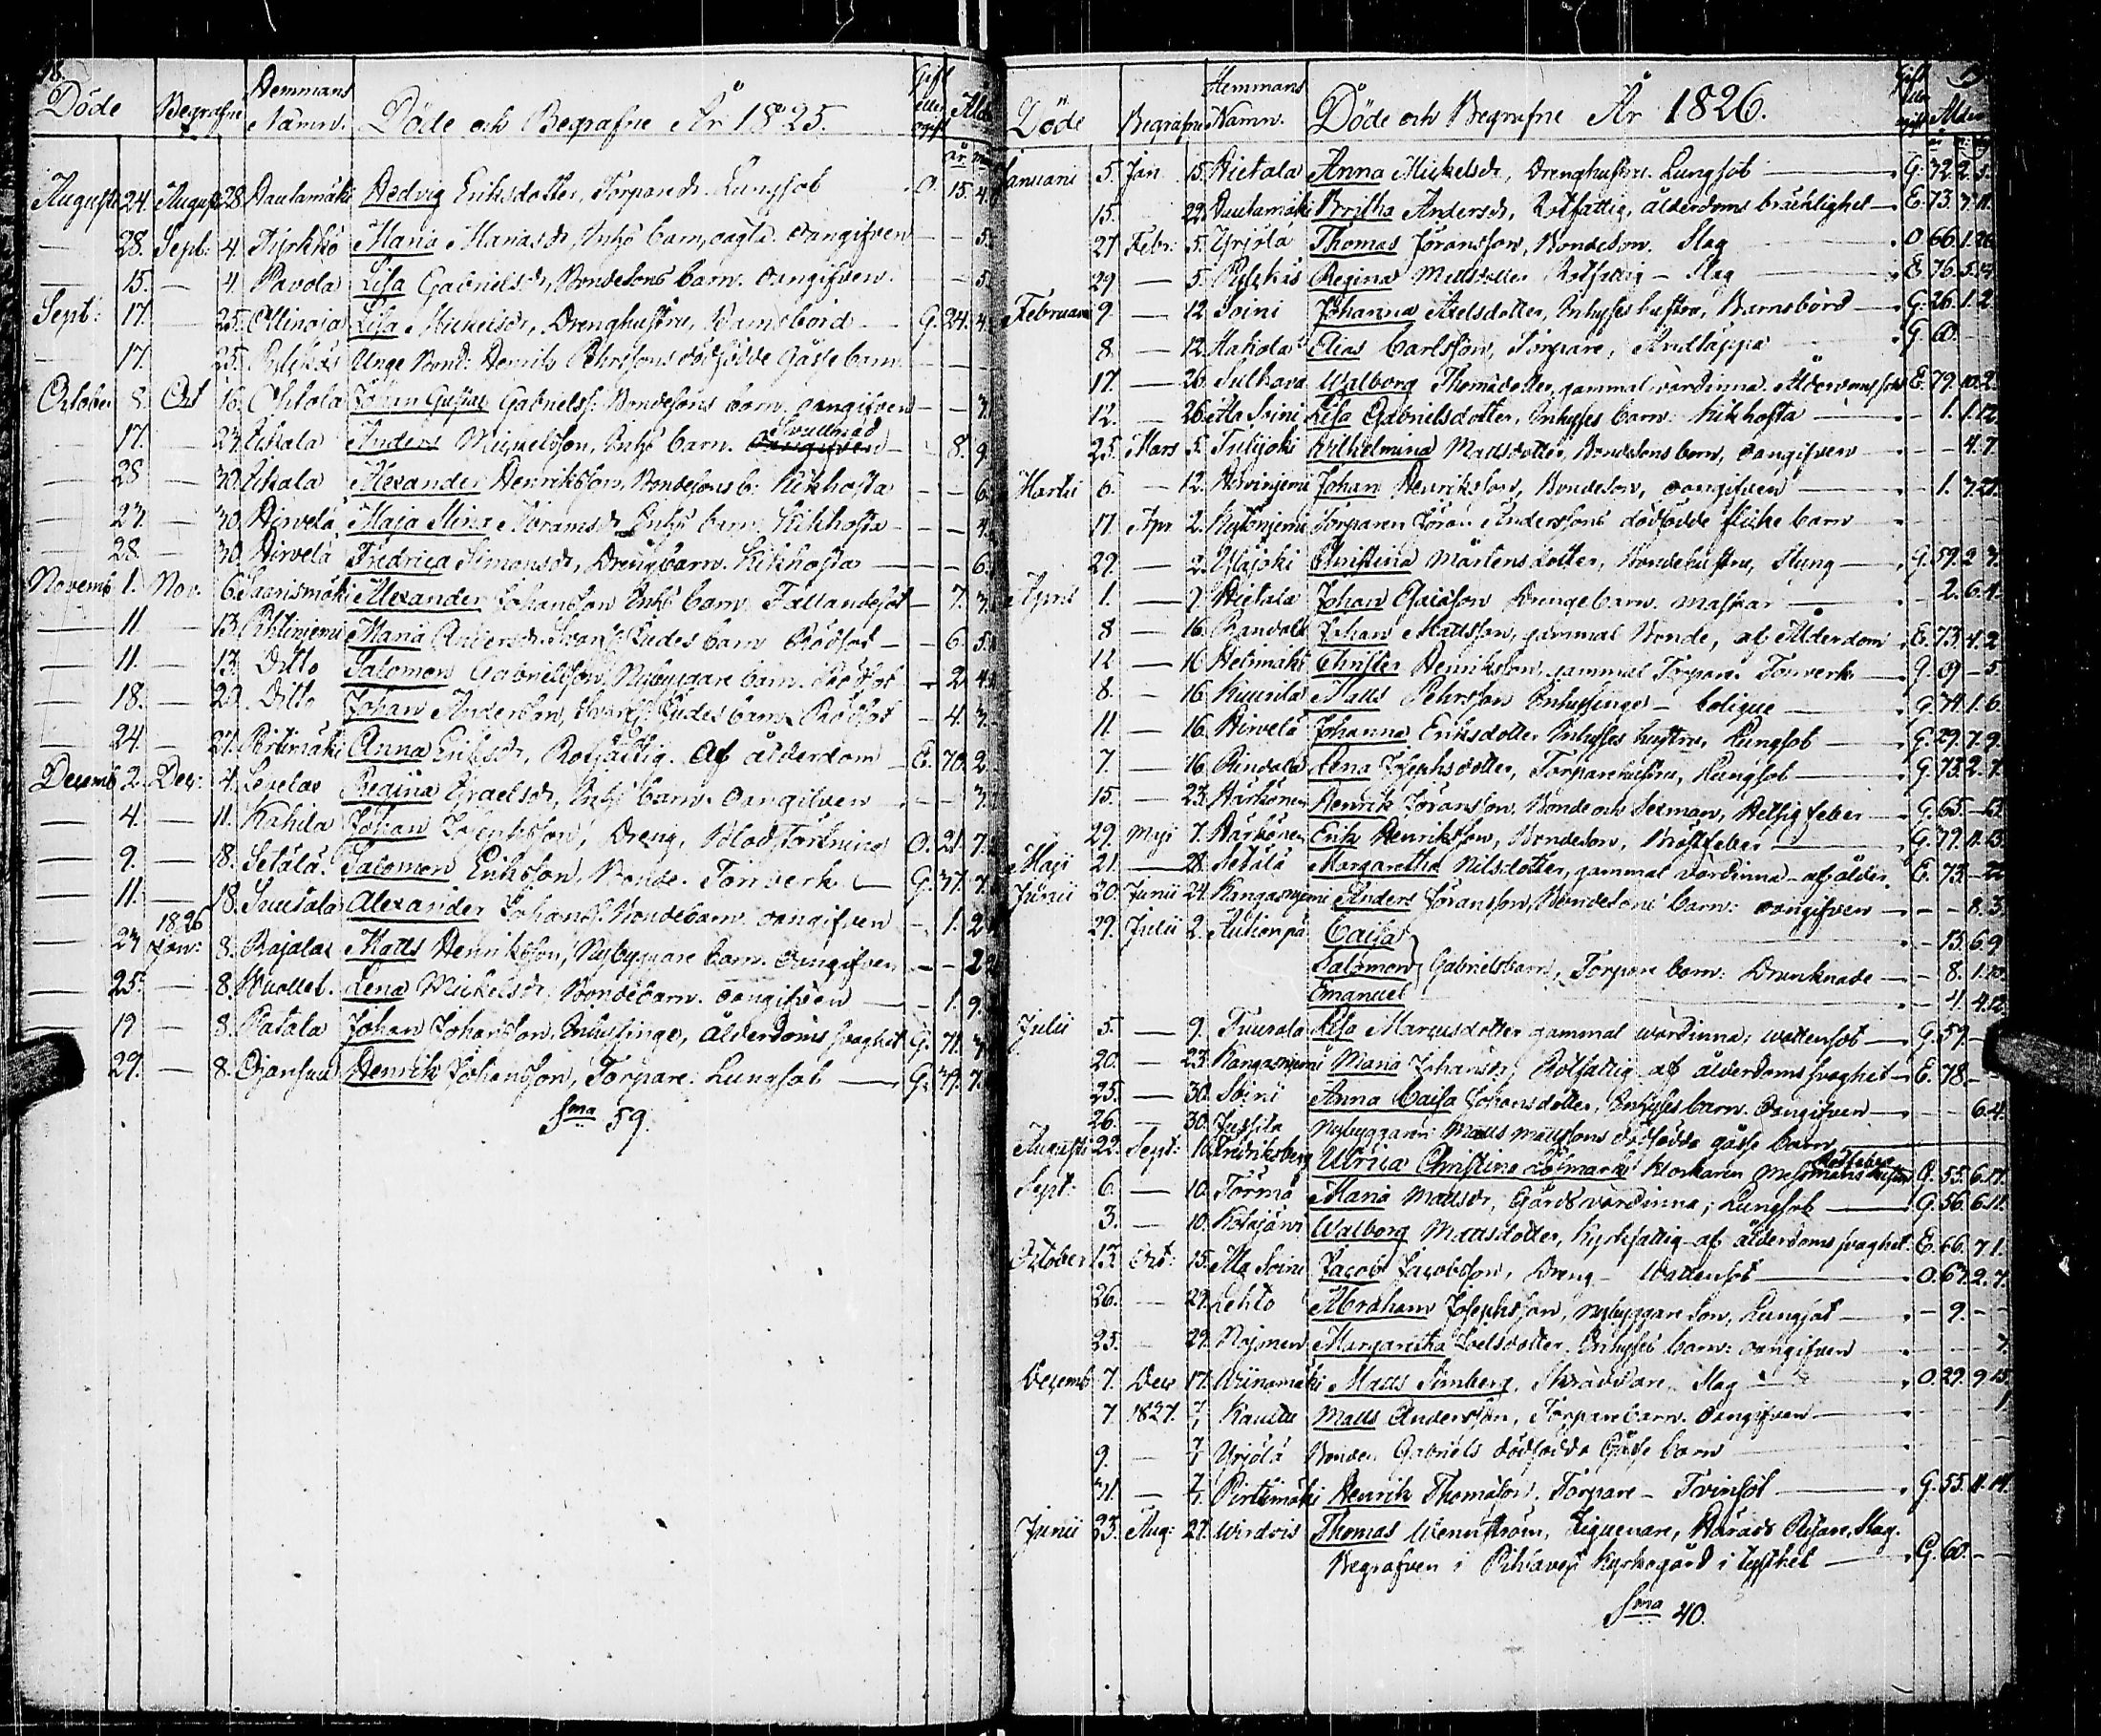 18.
Döde Begrafne Hemmans Namn. Döde och Begrafne År 1825. Gift eller ogift Ålder
år m
Augusti 24. August 28 Hautamäki Hedvig Eriksdotter, Torpare dr. Lungsot O. 15. 4.
— 28. Sept: 4. Maria Mariasdr, Inhs barn, oägta. oangifven — 5.
— 15. — 4. Pavola Lisa Gabrielsdr, Bondesons barn. oangifven. — 5.
Sept: 17. — 25. Ollinoja Lisa Mickelsdr, Drenghustru, Barnsbörd — G. 24. 4.
— 17. 25. Pylkäs Unge Bond: Henrik Pehrssons dödfödde Gåsse barn
October 8. Oct 16. Ohtola Johan Gustaf Gabrielss: Bondesons barn. oangifven — 3.
— 17. — 23. Uhala Anders Mickelsson, Inhs barn. Svullnad — 8. 9
— 28 — 30. Uhala Alexander Henriksson, Bondesons b: Kikhosta — 6.
— 27. — 30. Hirvelä Maja Stina Abramsdr Inhs barn Kikhosta — 4.
— 28. — 30. Hirvelä Fredrica Simonsdr, Drengbarn. Kikhosta — 6.
Novemb 1. Nov. 6. Saarismäki Alexander Johansson Inhs barn Fallandesot — 7. 3.
— 11 — 13. Pihtiniemi Maria Andersdr. barn Rödsot — 6. 5.
— 11. — 13. Ditto Salomon Gabrielsson, Nybyggare barn. Rödsot — 2. 4.
— 18. — 20. Ditto Johan Andersson, barn. Rödsot — 4. 3.
— 24. — 27. Pirtimäki Anna Eriksdr, Rotfattig. Af ålderdom E. 70. 2
Decemb 2. Dec: 4. Regina Israelsdr, Inhs barn. oangifven — 3.
— 4. — 11. Kahila Johan Josephsson, Dreng, Blodstörtning O. 21. 7.
— 9. — 18. Setälä. Salomon Eriksson, Bonde. Torrverk — G. 37. 7.
— 11. — 18. Junsala Alexander Johanss: Bondebarn. oangifven — 1. 2
1826
— 23 Jan: 8. Rajalas Matts Henriksson, Nybyggare barn. oangifven — 2.
— 25. — 8. Wuollet. Lena Mickelsdr. Bondebarn. oangifven — 1. 9.
— 19 — 8. Ratala Johan Johansson, Inhyssinge, ålderdoms svaghet G. 71. 3
— 29. — 8. Ojansuu Henrik Johansson, Torpare. Lungsot — G. 37. 7.
Sma 59.
Döde Begrafne Hemmans Namn. Döde och Begrafne År 1826. Gift eller ogift Ålder
Januarii 5. Jan 15. Hietala Anna Mickelsdr, Drenghustru. Lungsot — G. 32. 2. 5.
15. 22. Hautamäki Britha Andersdr, Rotfattig, ålderdoms bräcklighet — E. 73. 7. 11.
27 Febr: 5. Yrjölä Thomas Jöransson, Bondeson. Slag — O 66. 1. 26
29 — 5. Pylkäs Regina Mattsdotter Rotfattig — Slag — E. 76. 5. 14.
Februarii 9. — 12 Soini Johanna Axelsdotter, Inhysses hustru, Barnsbörd — G. 26. 1. 2.
8. — 12. Hakola Elias Carlsson, Torpare, G. 60.
17. — 26. Sulkava Walborg Thomadotter, gammal värdinna. E. 79. 10. 2.
12. 26. Ala Soini Lisa Gabrielsdotter, Inhysses barn. Kikhosta — 1. 1. 12.
25. Mars 5. Tulijoki Wilhelmina Mattsdotter, Bondesons barn, oangifven — 4. 7.
Martii 6. — 12. Johan Henriksson, Bondeson, oangifven — 1. 3. 21.
17 Apr 2. Torparen Jöran Anderssons dödfödde flicke barn
29. — 2. Ylijoki Christina Mårtensdotter, Bondehustru, Stung — G. 59. 2 3.
April 1. — 9. Hietala Johan Drengebarn. maskar — 2. 6. 4.
8 — 16. Randala Johan Mattsson, gammal Bonde, af Ålderdom — E. 73. 4. 2
12 — 16. Helimäki Christer Henriksson, gammal Torpare. Torrverk — G. 69 — 5.
8. — 16. Kuurila Matts Pehrsson Inhyssinge — colique — G. 74. 1. 6.
11. — 16. Hirvelä Johanna Eriksdotter Inhysses hustru, Lungsot — G. 29. 7. 9.
7. — 16. Rindala Lena Josephsdotter, Torparehustru, Lungsot — G. 73. 2. 7.
15. — 23. Härkönen Henrik Jöransson. Bonde och Sexman, Hetsig feber — G. 65.
29. Maji 7. Härkönen Erik Henriksson, Bondeson, Bröstfeber — G. 39. 11. 13.
Maji 21. — 28. Setälä Margaretha Nilsdotter, gammal värdinna — af ålder. E. 73. — 22
Junii 20. Junii 24. Kangasniemi Anders Jöransson, Bondesons barn: oangifven — 8. 3.
29. Julii 2. Caisa — 13. 6. 9.
Salomon Gabrielsbarn, Torpare barn: Drunknade — 8. 1. 10.
Emanuel — 4. 4. 12.
Julii 5. — 9. Tuurala Lisa Marcusdotter gammal wärdinna; wattensot — G. 59. —
20. — 23. Kangasniemi Maria Johansdr, Rotfattig af ålderdoms svaghet — E. 78. —
25. — 30. Soini Anna Caisa Johansdotter, Inhysses barn. oangifven — 6. 4.
26. — 30. Jussila Nybyggaren Matts Mattssons dödfödda gåsse barn
Augusti 22. Sept: 10. Fredriksberg Ulrica Christina Löfmarck Klockaren G. 55. 6. 17.
Sept: 6. — 10. Törmä Maria Mattsdr, Gårdsvärdinna; Lungsot — G. 56. 6. 11.
3. — 10. Kotajärvi Walborg Mattsdotter, Kyrkfattig af ålderdoms svaghet. E. 66. 7 1.
October 13. Oct: 15. Ala Soini Jacob Jacobsson, Dreng — Wattensot — O. 67. 2. 7.
26. — 29. Lehto Abraham Josephsson, Nybyggare son, Lungsot — 9. —
25. 29. Nojonen Margaretha Joelsdotter, Inhysses barn: oangifven — 7.
Decemb 7. Dec 17. Wiinamäki Matts Simberg, Skräddare. Slag — O. 29. 9 15.
7. 1827. 7/1 Kaustu Matts Andersson, Torparebarn. oangifven — 1.
9. — 7/1 Yrjölä Bonden Gabriels dödfödda Gåsse barn
31. — 7/1 Pirttimäki Henrik Thomasson. Torpare — Tvinsot — G. 55. 11. 14.
Junii 23. Aug: 27. Wirdois Thomas Wennström, Ziguenare, Härads Ridare, Slag.
Begrafven i Pihlavesi Kyrkogård i tysthet — G. 60. —
Sma 40.